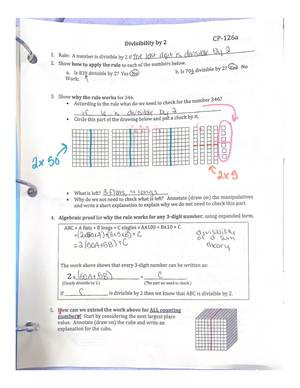 Divisibility by 2
CP-126a
1. Rule: A number is divisible by 2 if the last digit is divisible by 2
2. Show how to apply the rule to each of the numbers below.
a. Is 839 divisible by 2? Yes No
b. Is 704 divisible by 2? Yes No
Work: 9
3. Show why the rule works for 346.
• According to the rule what do we need to check for the number 346?
if 6 is divisible by 2
• Circle this part of the drawing below and put a check by it.
2x50
2x5
• What is left? 3 flats 4 longs
• Why do we not need to check what is left? Annotate (draw on) the manipulatives
and write a short explanation to explain why we do not need to check this part.
4. Algebraic proof for why the rule works for any 3-digit number, using expanded form.
ABC = A flats + B longs + C singles = AX100 + BX10 + C
=2(50A+5B)+C
divisibility
of a sum
theory
The work above shows that every 3-digit number can be written as:
2x(50A+5B) + C
(Clearly divisible by 2.) (The part we need to check.)
If C is divisible by 2 then we know that ABC is divisible by 2.
5. How can we extend the work above for ALL counting
numbers? Start by considering the next largest place
value. Annotate (draw on) the cube and write an
explanation for the cube.